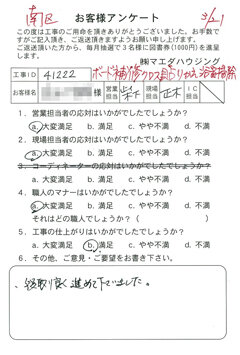 南区
お客様アンケート
3/21
この度は工事のご用命を頂きありがとうございました。お手数で
すがご記入頂き、ご返送頂きますようお願い申し上げます。
ご返送頂いた方から、毎月抽選で3名様に図書券(1000円)を進呈
します。
㈱マエダハウジング
工事ID 41222 ボード補修クロス貼りかえ浴室掃除
お客様名 様 営業担当 現場担当 IC担当
1. 営業担当者の応対はいかがでしたでしょうか?
a. 大変満足 b. 満足 c. やや不満 d. 不満
2. 現場担当者の応対はいかがでしたでしょうか?
a. 大変満足 b. 満足 c. やや不満 d. 不満
3. コーディネーターの応対はいかがでしたでしょうか?
a. 大変満足 b. 満足 c. やや不満 d. 不満
4. 職人のマナーはいかがでしたでしょうか?
a. 大変満足 b. 満足 c. やや不満 d. 不満
それはどの職人でしょうか?( )
5. 工事の仕上がりはいかがでしたでしょうか?
a. 大変満足 b. 満足 c. やや不満 d. 不満
6. その他、ご意見・ご要望をお書き下さい。
段取り良く進めて下さいました。